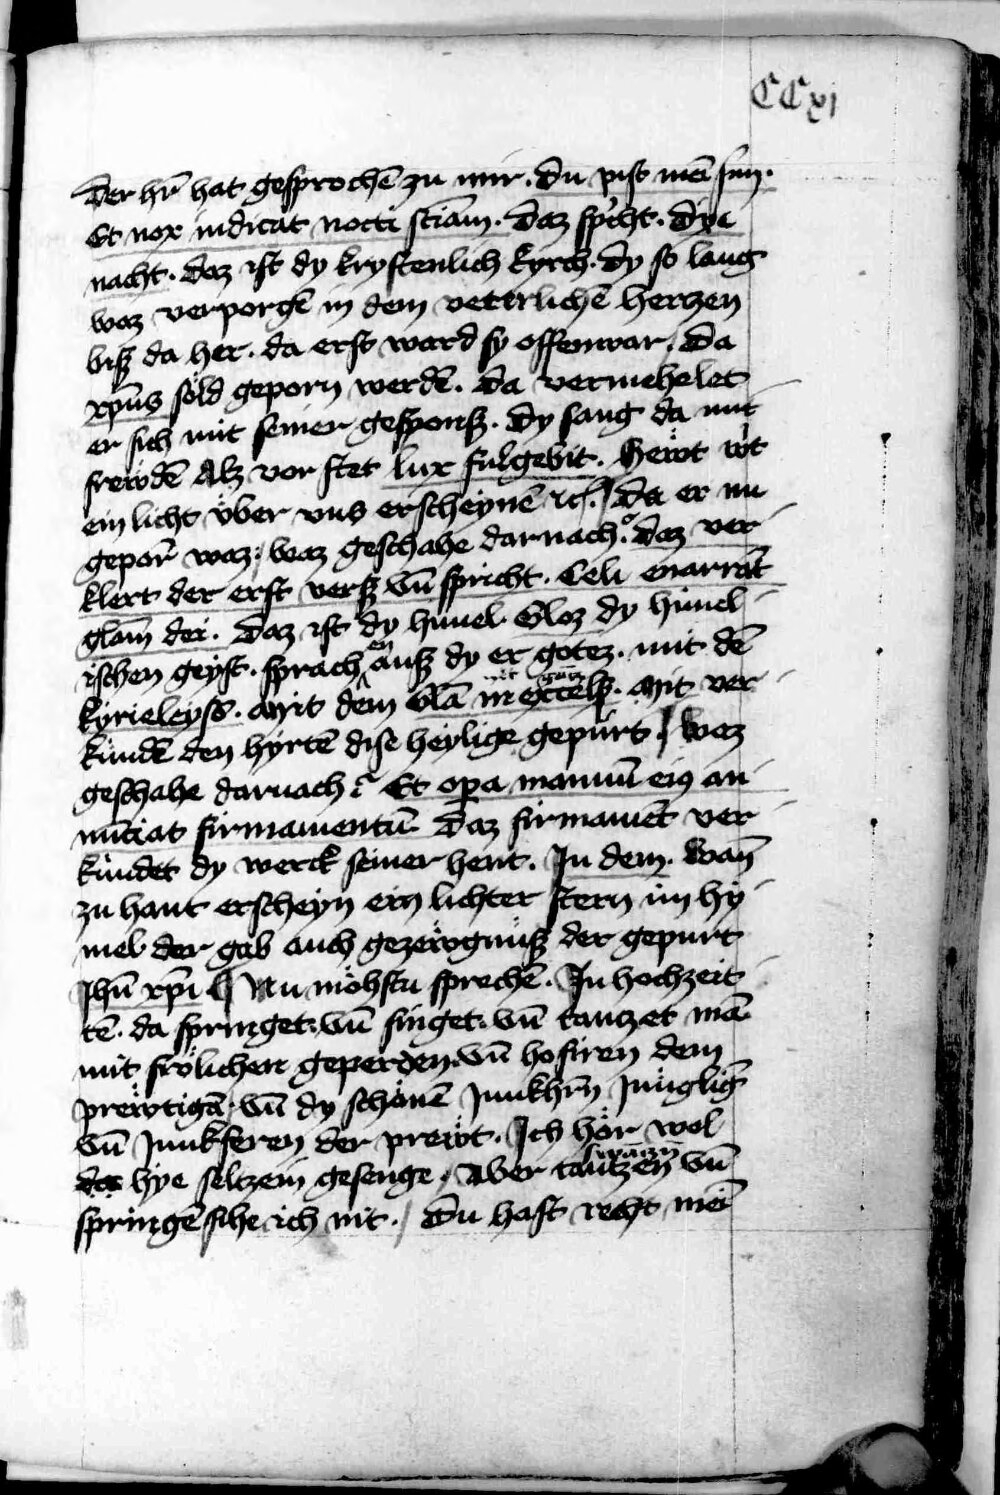 CCxj
Der hr̄ hat gesprochē zu mir. du pist mēi sun.
Et nox indicat nocti sciām. Daz sp̄cht. Dye
nacht. daz ist dy krystenlich kyrch. dy so lang
waz verporgē in dem veterlichē hertzen
bisz da her. da erst ward sy offenwar. Da
xp̄us sold geporn werdē. Da vermehelet
er sich mit seiner gesponsz. dy sang da mit
frewdē Alz vor stet lux fulgebit. Hewt wt
ein licht v̈ber vns erscheynē ꝛc. Da er nu
gepor̄n waz. waz geschahe darnach. daz ver
klert der erst versz vn̄ spricht. Celi enarrāt
glām dei. Daz ist dy himel Gloz dy himel
ischen geyst. sprachen ausz dy er gotez. mit dē
kyrieleyss. Mit dem Glā in excelsz. Mit ver
kündē den hyrtē dise heylige gepürt. waz
geschahe darnach. Et opa manuū eiꝰ an
nūciat firmamentū. Daz firmamēt ver
kündet dy werck seiner hent. In dem. Wan̄
zu hant erscheyn ein lichter stern im hy
mel der gab auch gezewgnüsz der gepurt
Ihū xp̄i Nu möhstu sprechē. In hochzeit
tē. da springet. vn̄ singet. vn̄ tantzet mā
mit frölichen geperden. vn̄ hofiren dem
prewtigā. vn̄ dy schönē Junkhrn̄ Jüngligē
vn̄ Junkferen der prewt. Ich hör wol
hye seltzein gesenge. Aber tantzen vn̄
springē sihe ich nit. Du hast recht mēi